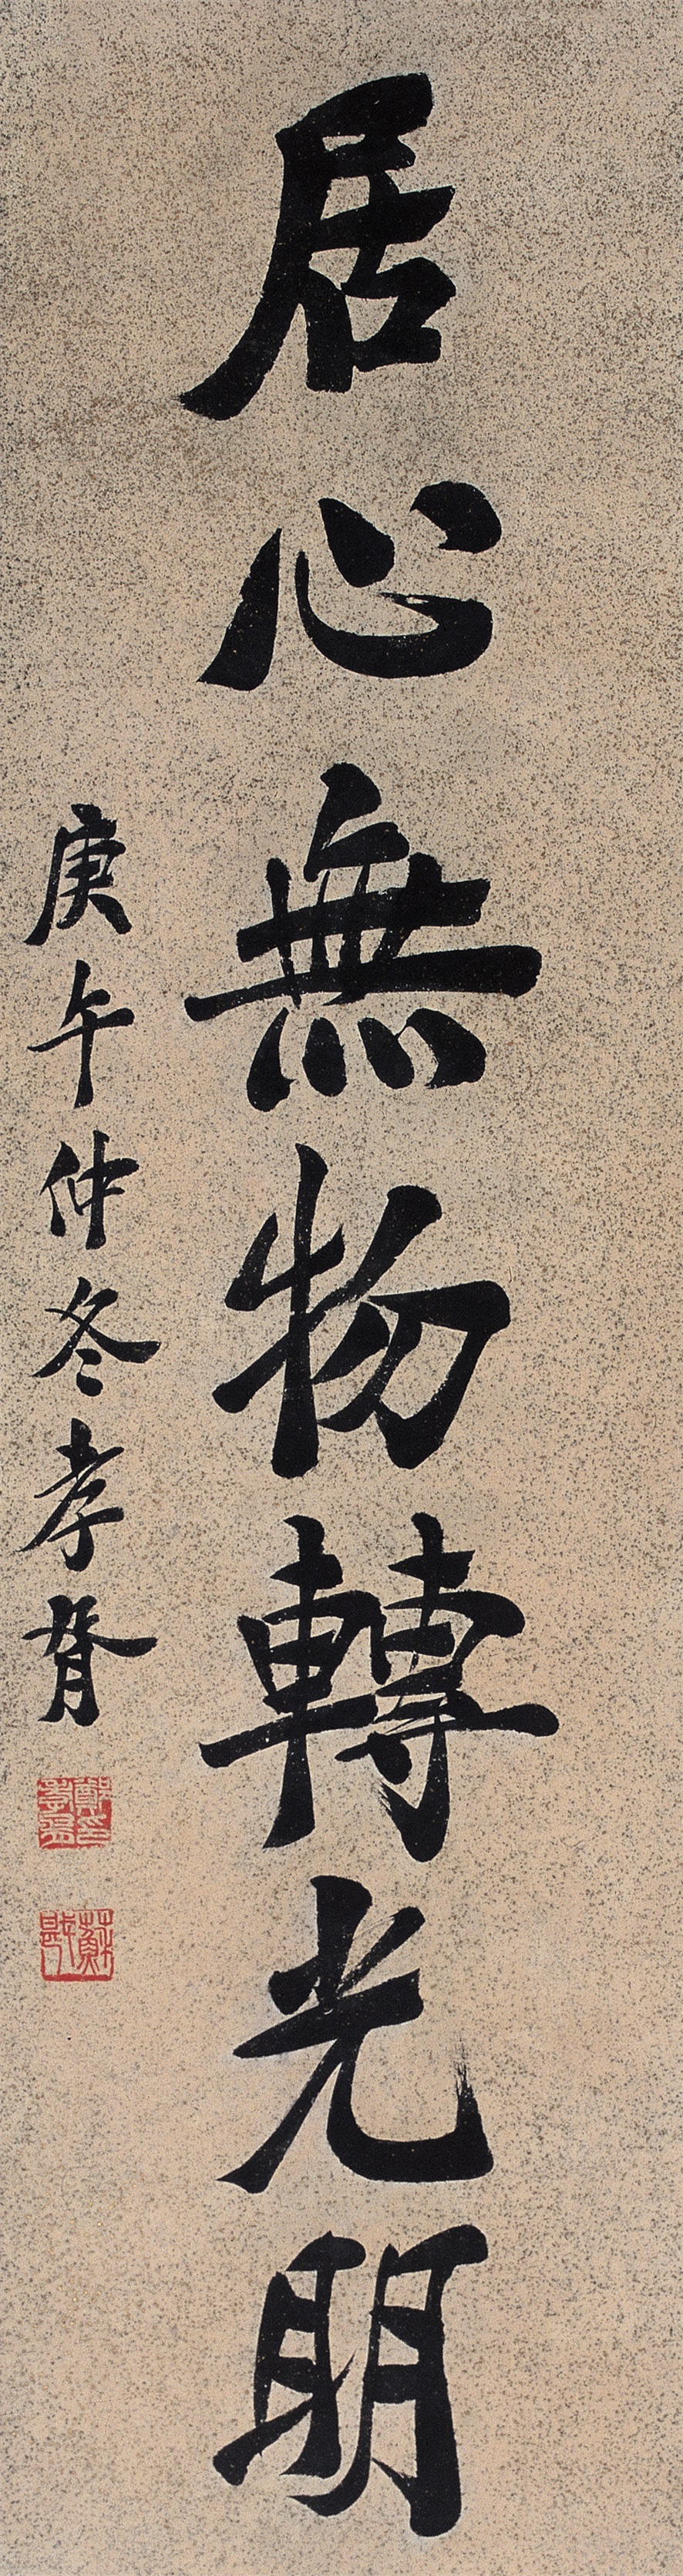 居心無物轉光明
庚午仲冬孝胥
鄭印孝胥
蘇戡